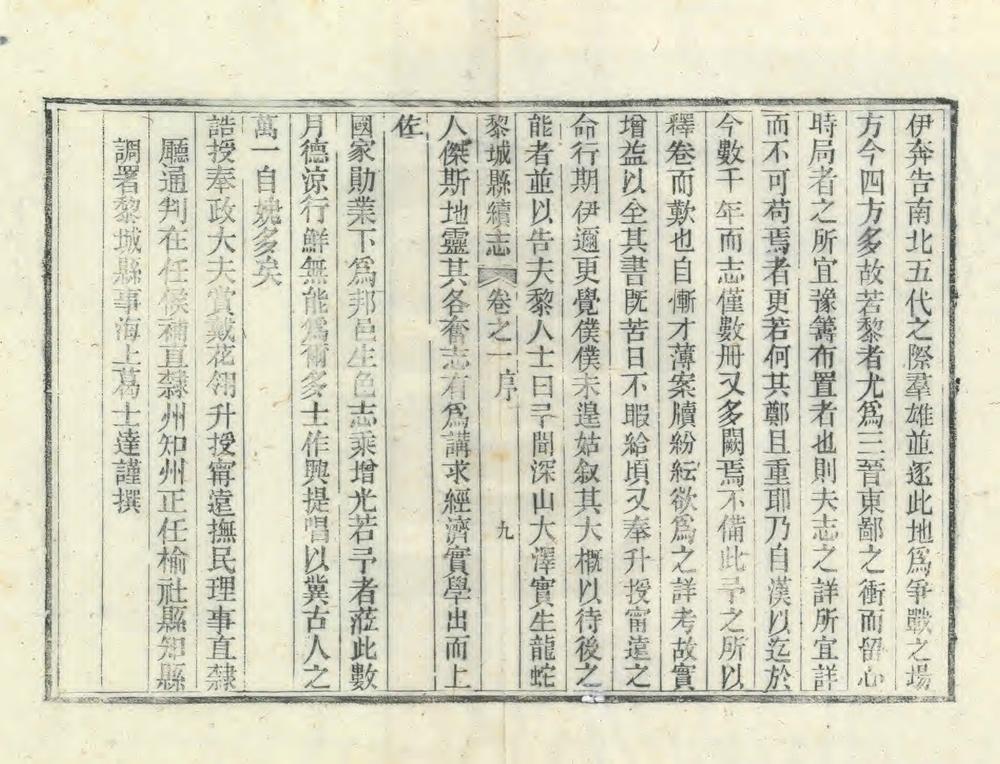 伊奔告南北五代之際羣雄並逐此地爲爭戰之場
方今四方多故若黎者尤爲三晉東鄙之衝而留心
時局者之所宜豫籌布置者也則夫志之詳所宜詳
而不可苟焉者更若何其鄭且重耶乃自漢以迄於
今數千年而志僅數册又多闕焉不備此予之所以
釋卷而歎也自慚才薄案牘紛紜欲爲之詳考故實
增益以全其書既苦日不暇給頃又奉升授甯遠之
命行期伊邇更覺僕僕未遑姑叙其大槪以待後之
能者並以告夫黎人士曰予聞深山大澤實生龍蛇
黎城縣續志 卷之一 序 九
人傑斯地靈其各奮志有爲講求經濟實學出而上
佐
國家勛業下爲邦邑生色志乘增光若予者蒞此數
月德凉行鮮無能爲爾多士作興提唱以冀古人之
萬一自媿多矣
誥授奉政大夫賞戴花翎升授甯遠撫民理事直隸
廳通判在任候補直隸州知州正任榆社縣知縣
調署黎城縣事海上葛士達謹撰